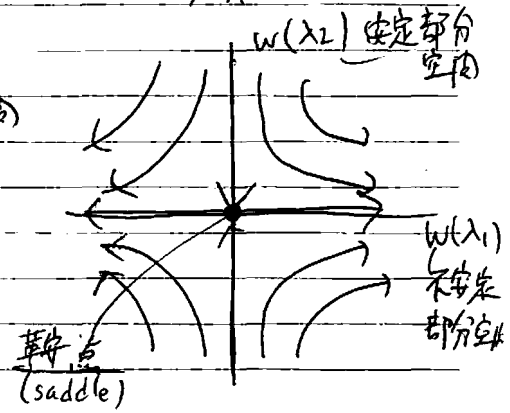 W(λ2) 安定部分
空间
W(λ1)
不安定
部分空間
鞍点
(saddle)